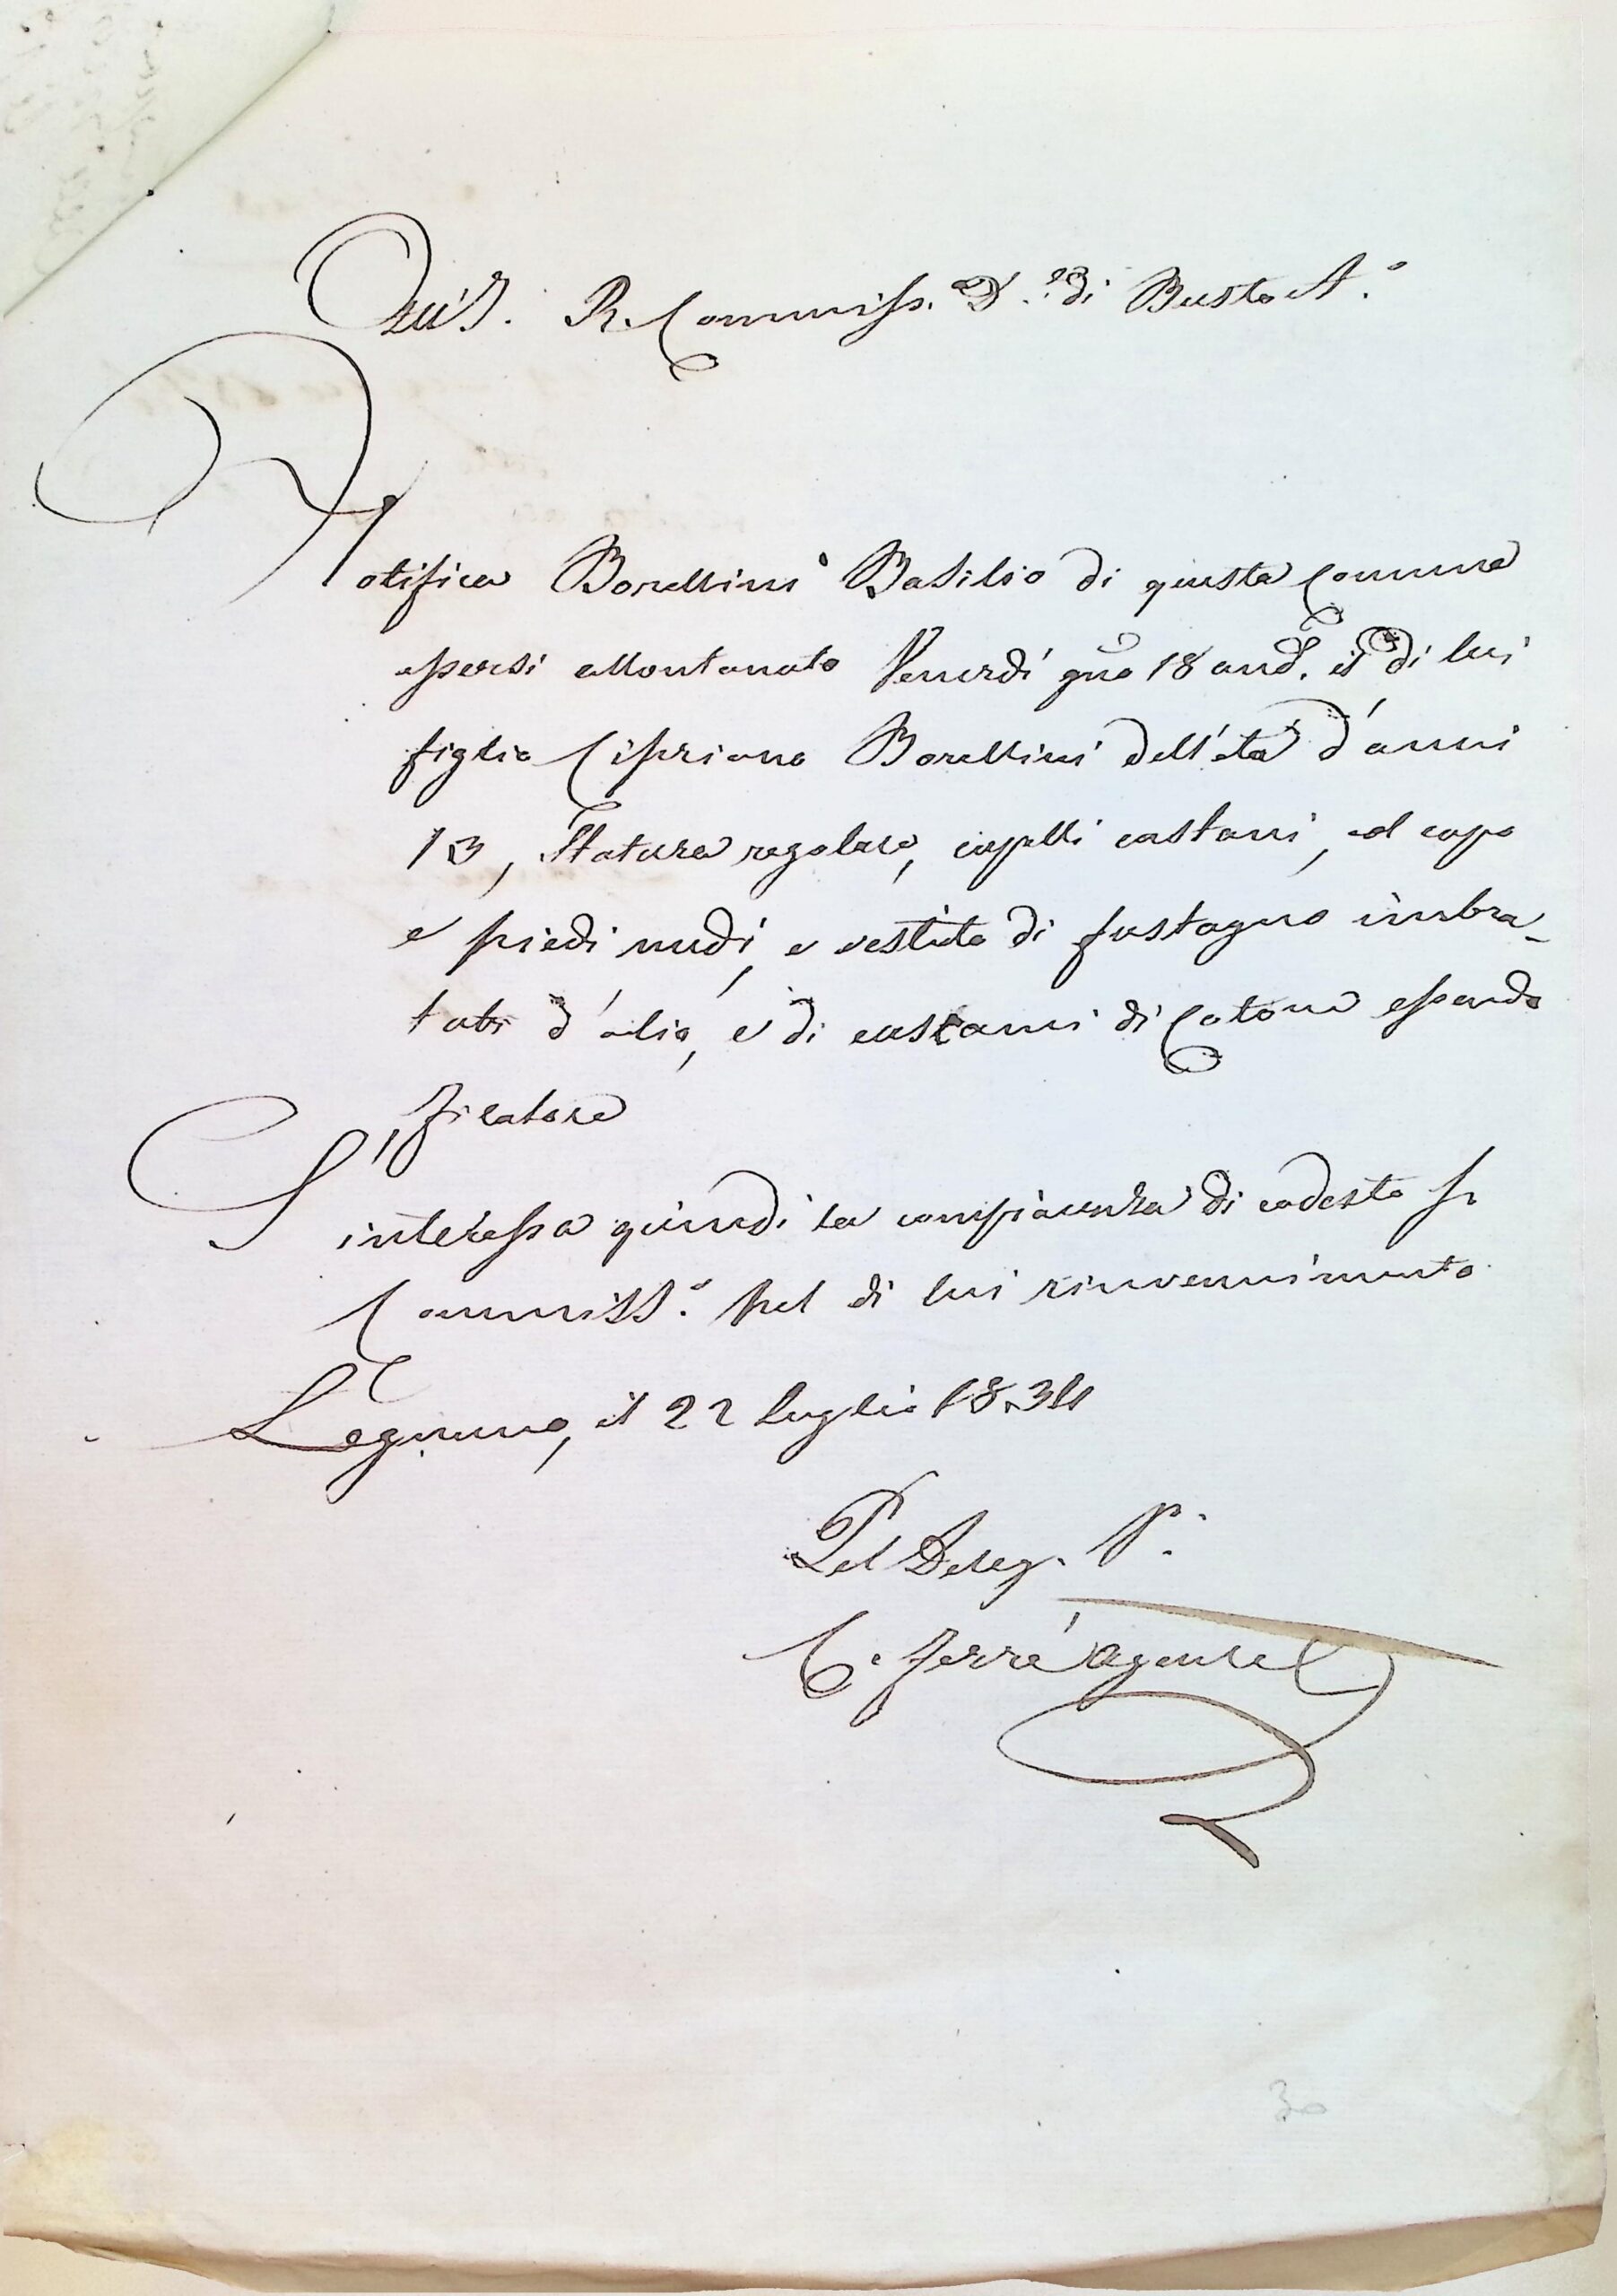 All' I. R. Commiss. D.le di Busto A.o
Notifica Borellini Basilio di questa Comune
essersi allontanato Venerdì gno 18 and.e il di lui
figlio Cipriano Borellini dell'età d'anni
13, Statura regolare, capelli castani, al capo
e piedi nudi, e vestito di fustagno imbra-
tato d'olio, e di cascami di Cotone essendo
filatore
S'interessa quindi la compiacenza di codesto
Commiss.o pel di lui rinvenimento.
Legnano, il 22 luglio 1834
Pel Deleg. P.
C. Ferrè Agente
30